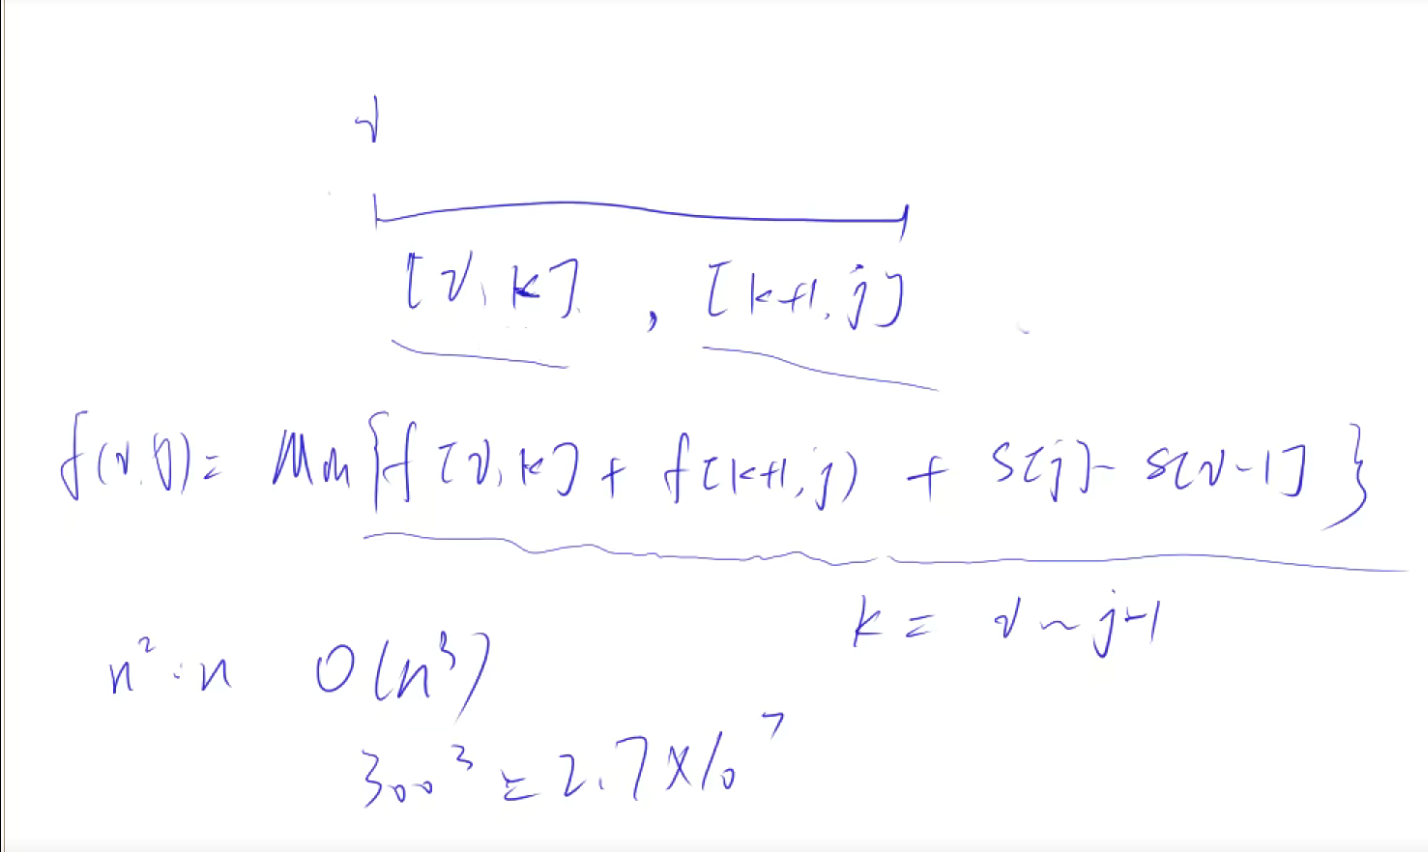 i
[i, k] , [k+1, j]
f(i, j) = Min{f[i, k] + f[k+1, j) + s[j] - s[i-1] }
k = i ~ j-1
n² · n O(n³)
300³ = 2.7 × 10⁷